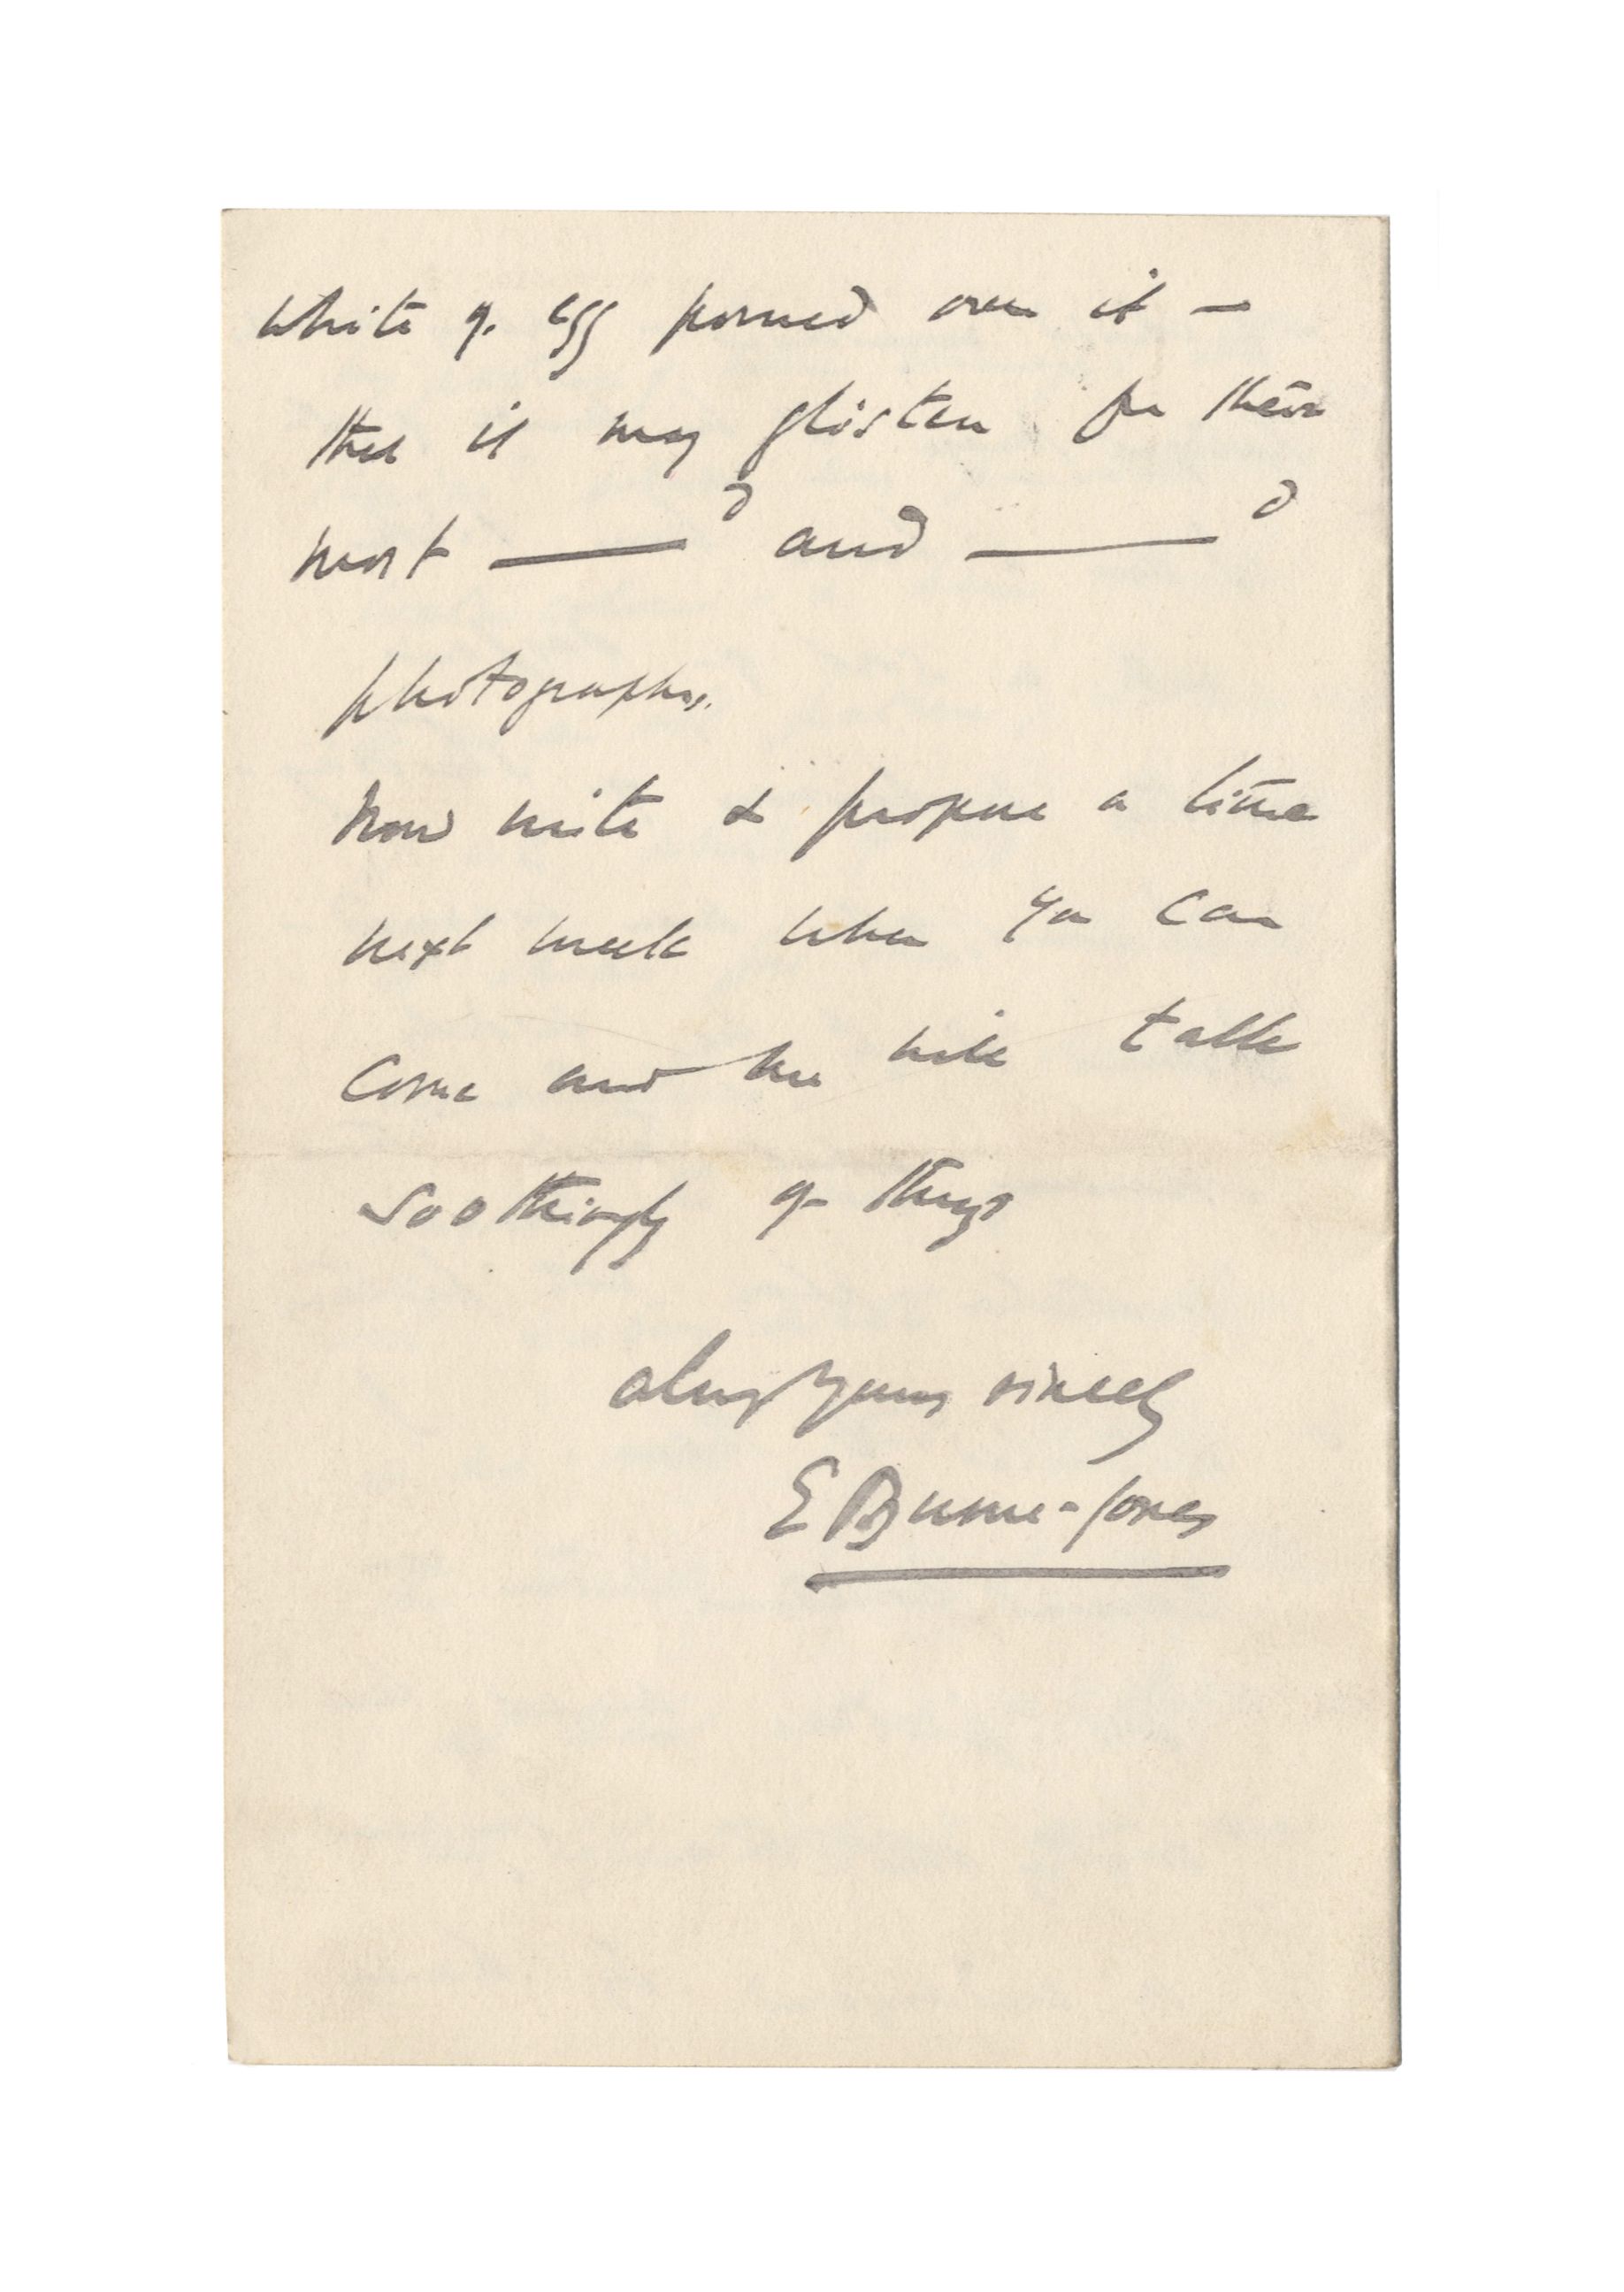 white of egg poured over it —
that it may glisten for their
most ——d and ——d
photographs.
Now write & propose a time
next week when you can
come and we will talk
soothingly of things
always yours sincerely
E Burne-Jones